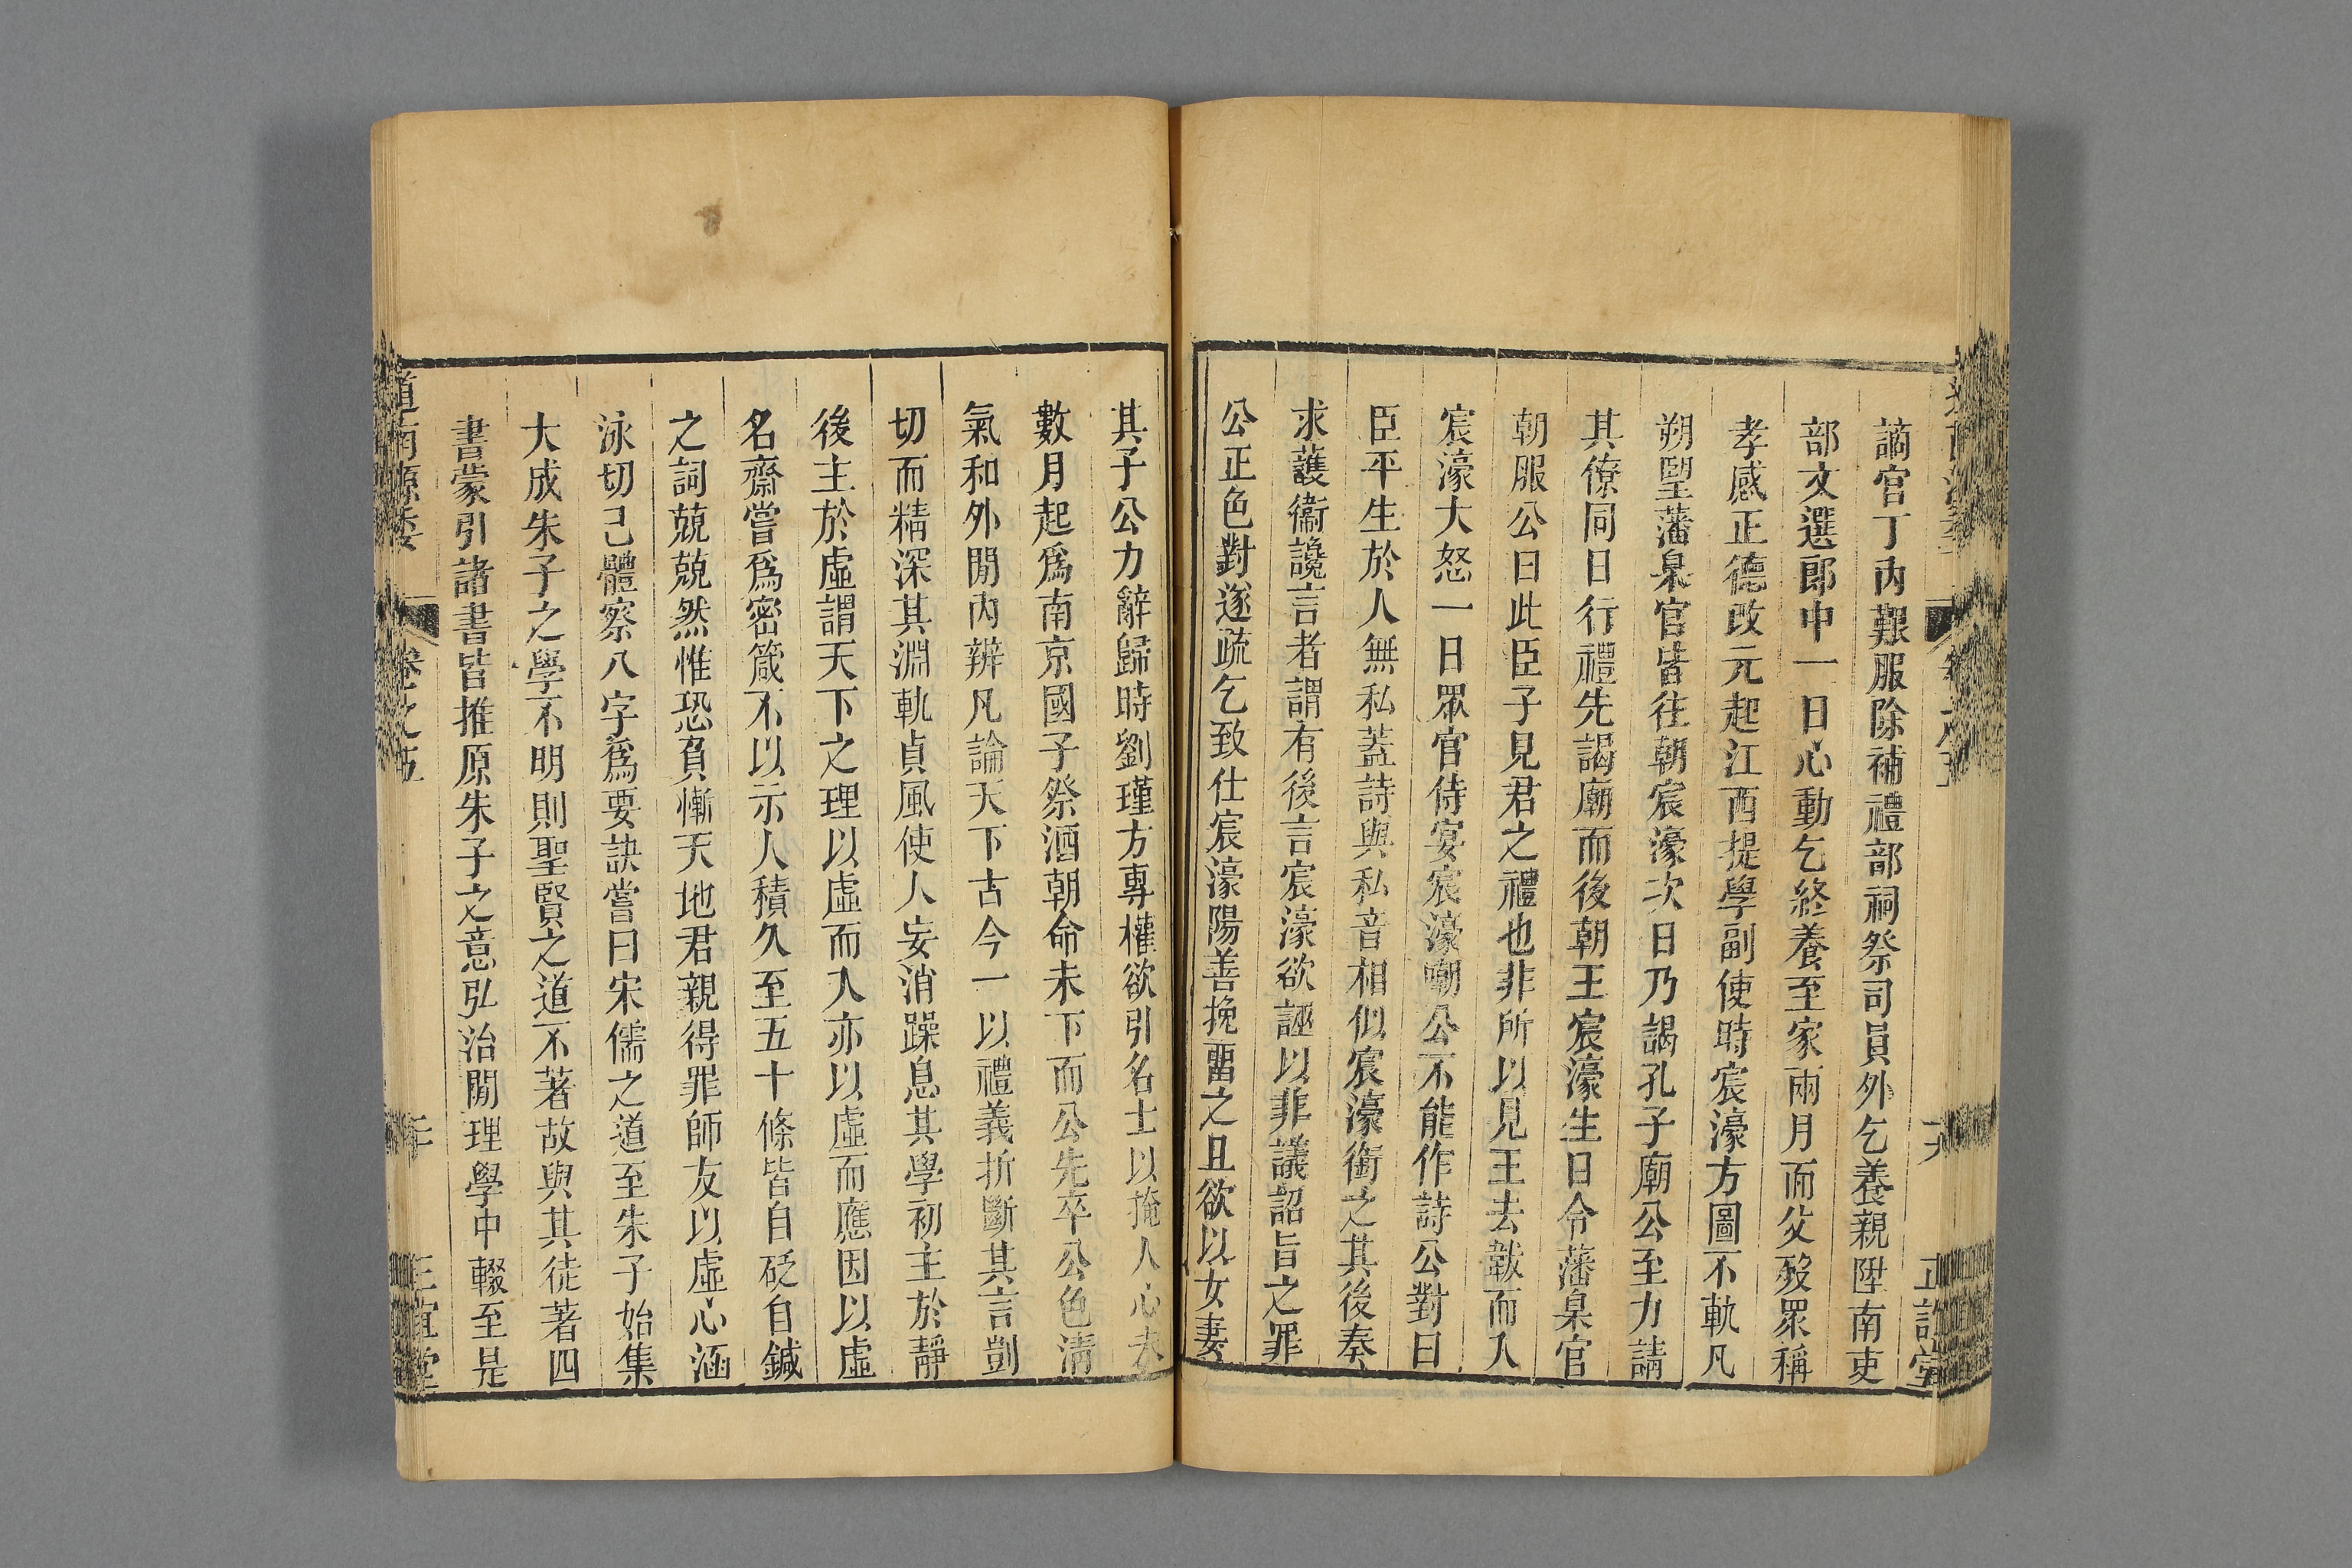 謫官丁內艱服除補禮部祠祭司員外乞養親陞南吏
部文選郎中一日心動乞終養至家兩月而父歿眾稱
孝感正德改元起江西提學副使時宸濠方圖不軌凡
朔朢藩臬官皆往朝宸濠次日乃謁孔子廟公至力請
其僚同日行禮先謁廟而後朝王宸濠生日令藩臬官
朝服公曰此臣子見君之禮也非所以見王去韍而入
宸濠大怒一日眾官侍宴宸濠嘲公不能作詩公對曰
臣平生於人無私蓋詩與私音相似宸濠銜之其後奏
求護衞讒言者謂有後言宸濠欲誣以非議詔旨之罪
公正色對遂疏乞致仕宸濠陽善挽畱之且欲以女妻
其子公力辭歸時劉瑾方專權欲引名士以掩人心去
數月起爲南京國子祭酒朝命未下而公先卒公色清
氣和外閒內辨凡論天下古今一以禮義折斷其言剴
切而精深其淵軌貞風使人妄消躁息其學初主於靜
後主於虛謂天下之理以虛而入亦以虛而應因以虛
名齋嘗爲密箴不以示人積久至五十條皆自砭自鍼
之詞兢兢然惟恐負慚天地君親得罪師友以虛心涵
泳切己體察八字爲要訣嘗曰宋儒之道至朱子始集
大成朱子之學不明則聖賢之道不著故與其徒著四
書蒙引諸書皆推原朱子之意弘治閒理學中輟至是
道南源委
卷之五
正誼堂